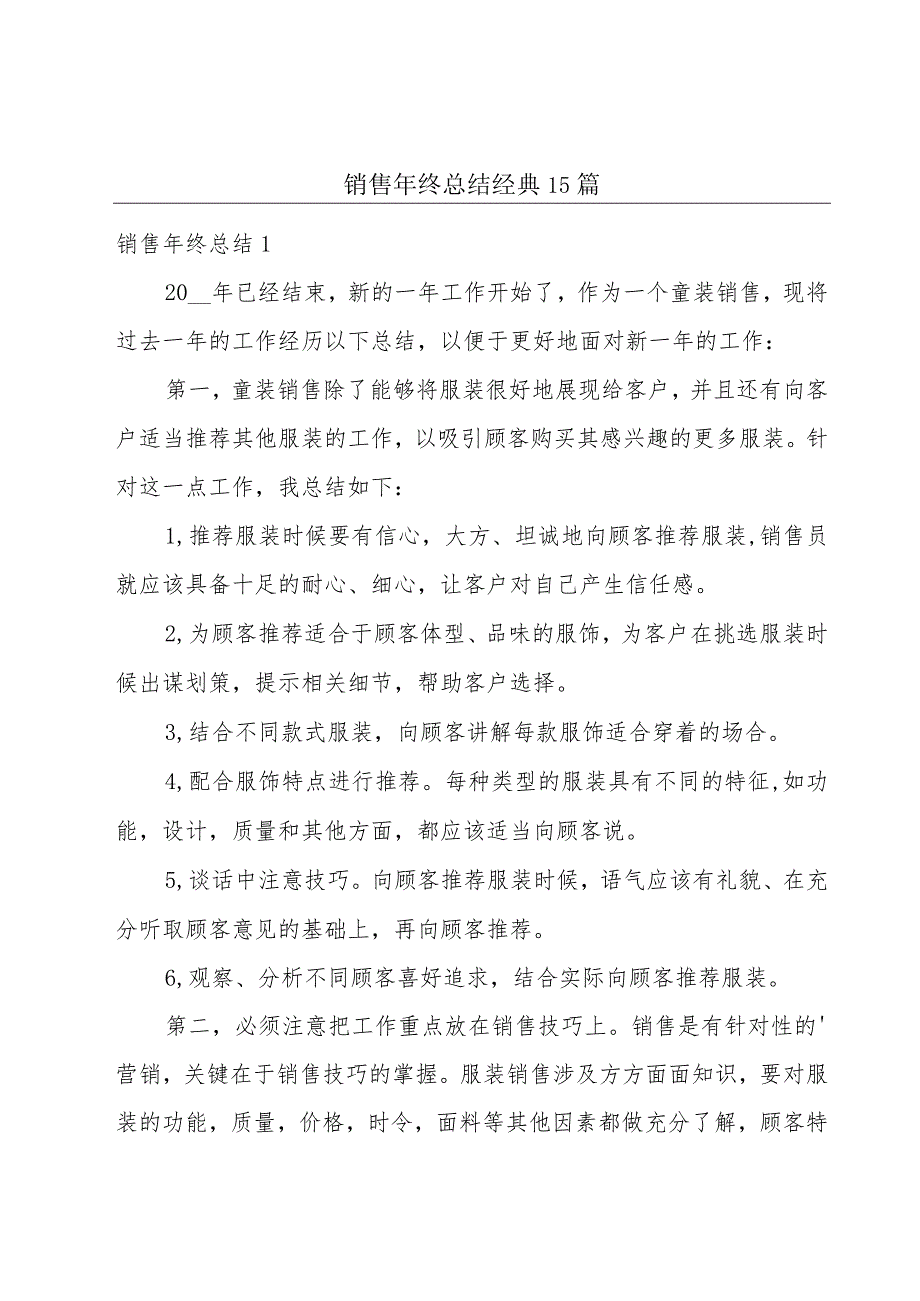 销售年终总结经典15篇
销售年终总结1
20__年已经结束，新的一年工作开始了，作为一个童装销售，现将
过去一年的工作经历以下总结，以便于更好地面对新一年的工作：
第一，童装销售除了能够将服装很好地展现给客户，并且还有向客
户适当推荐其他服装的工作，以吸引顾客购买其感兴趣的更多服装。针
对这一点工作，我总结如下：
1,推荐服装时候要有信心，大方、坦诚地向顾客推荐服装,销售员
就应该具备十足的耐心、细心，让客户对自己产生信任感。
2,为顾客推荐适合于顾客体型、品味的服饰，为客户在挑选服装时
候出谋划策，提示相关细节，帮助客户选择。
3,结合不同款式服装，向顾客讲解每款服饰适合穿着的场合。
4,配合服饰特点进行推荐。每种类型的服装具有不同的特征,如功
能，设计，质量和其他方面，都应该适当向顾客说。
5,谈话中注意技巧。向顾客推荐服装时候，语气应该有礼貌、在充
分听取顾客意见的基础上，再向顾客推荐。
6,观察、分析不同顾客喜好追求，结合实际向顾客推荐服装。
第二，必须注意把工作重点放在销售技巧上。销售是有针对性的'
营销，关键在于销售技巧的掌握。服装销售涉及方方面面知识，要对服
装的功能，质量，价格，时令，面料等其他因素都做充分了解，顾客特